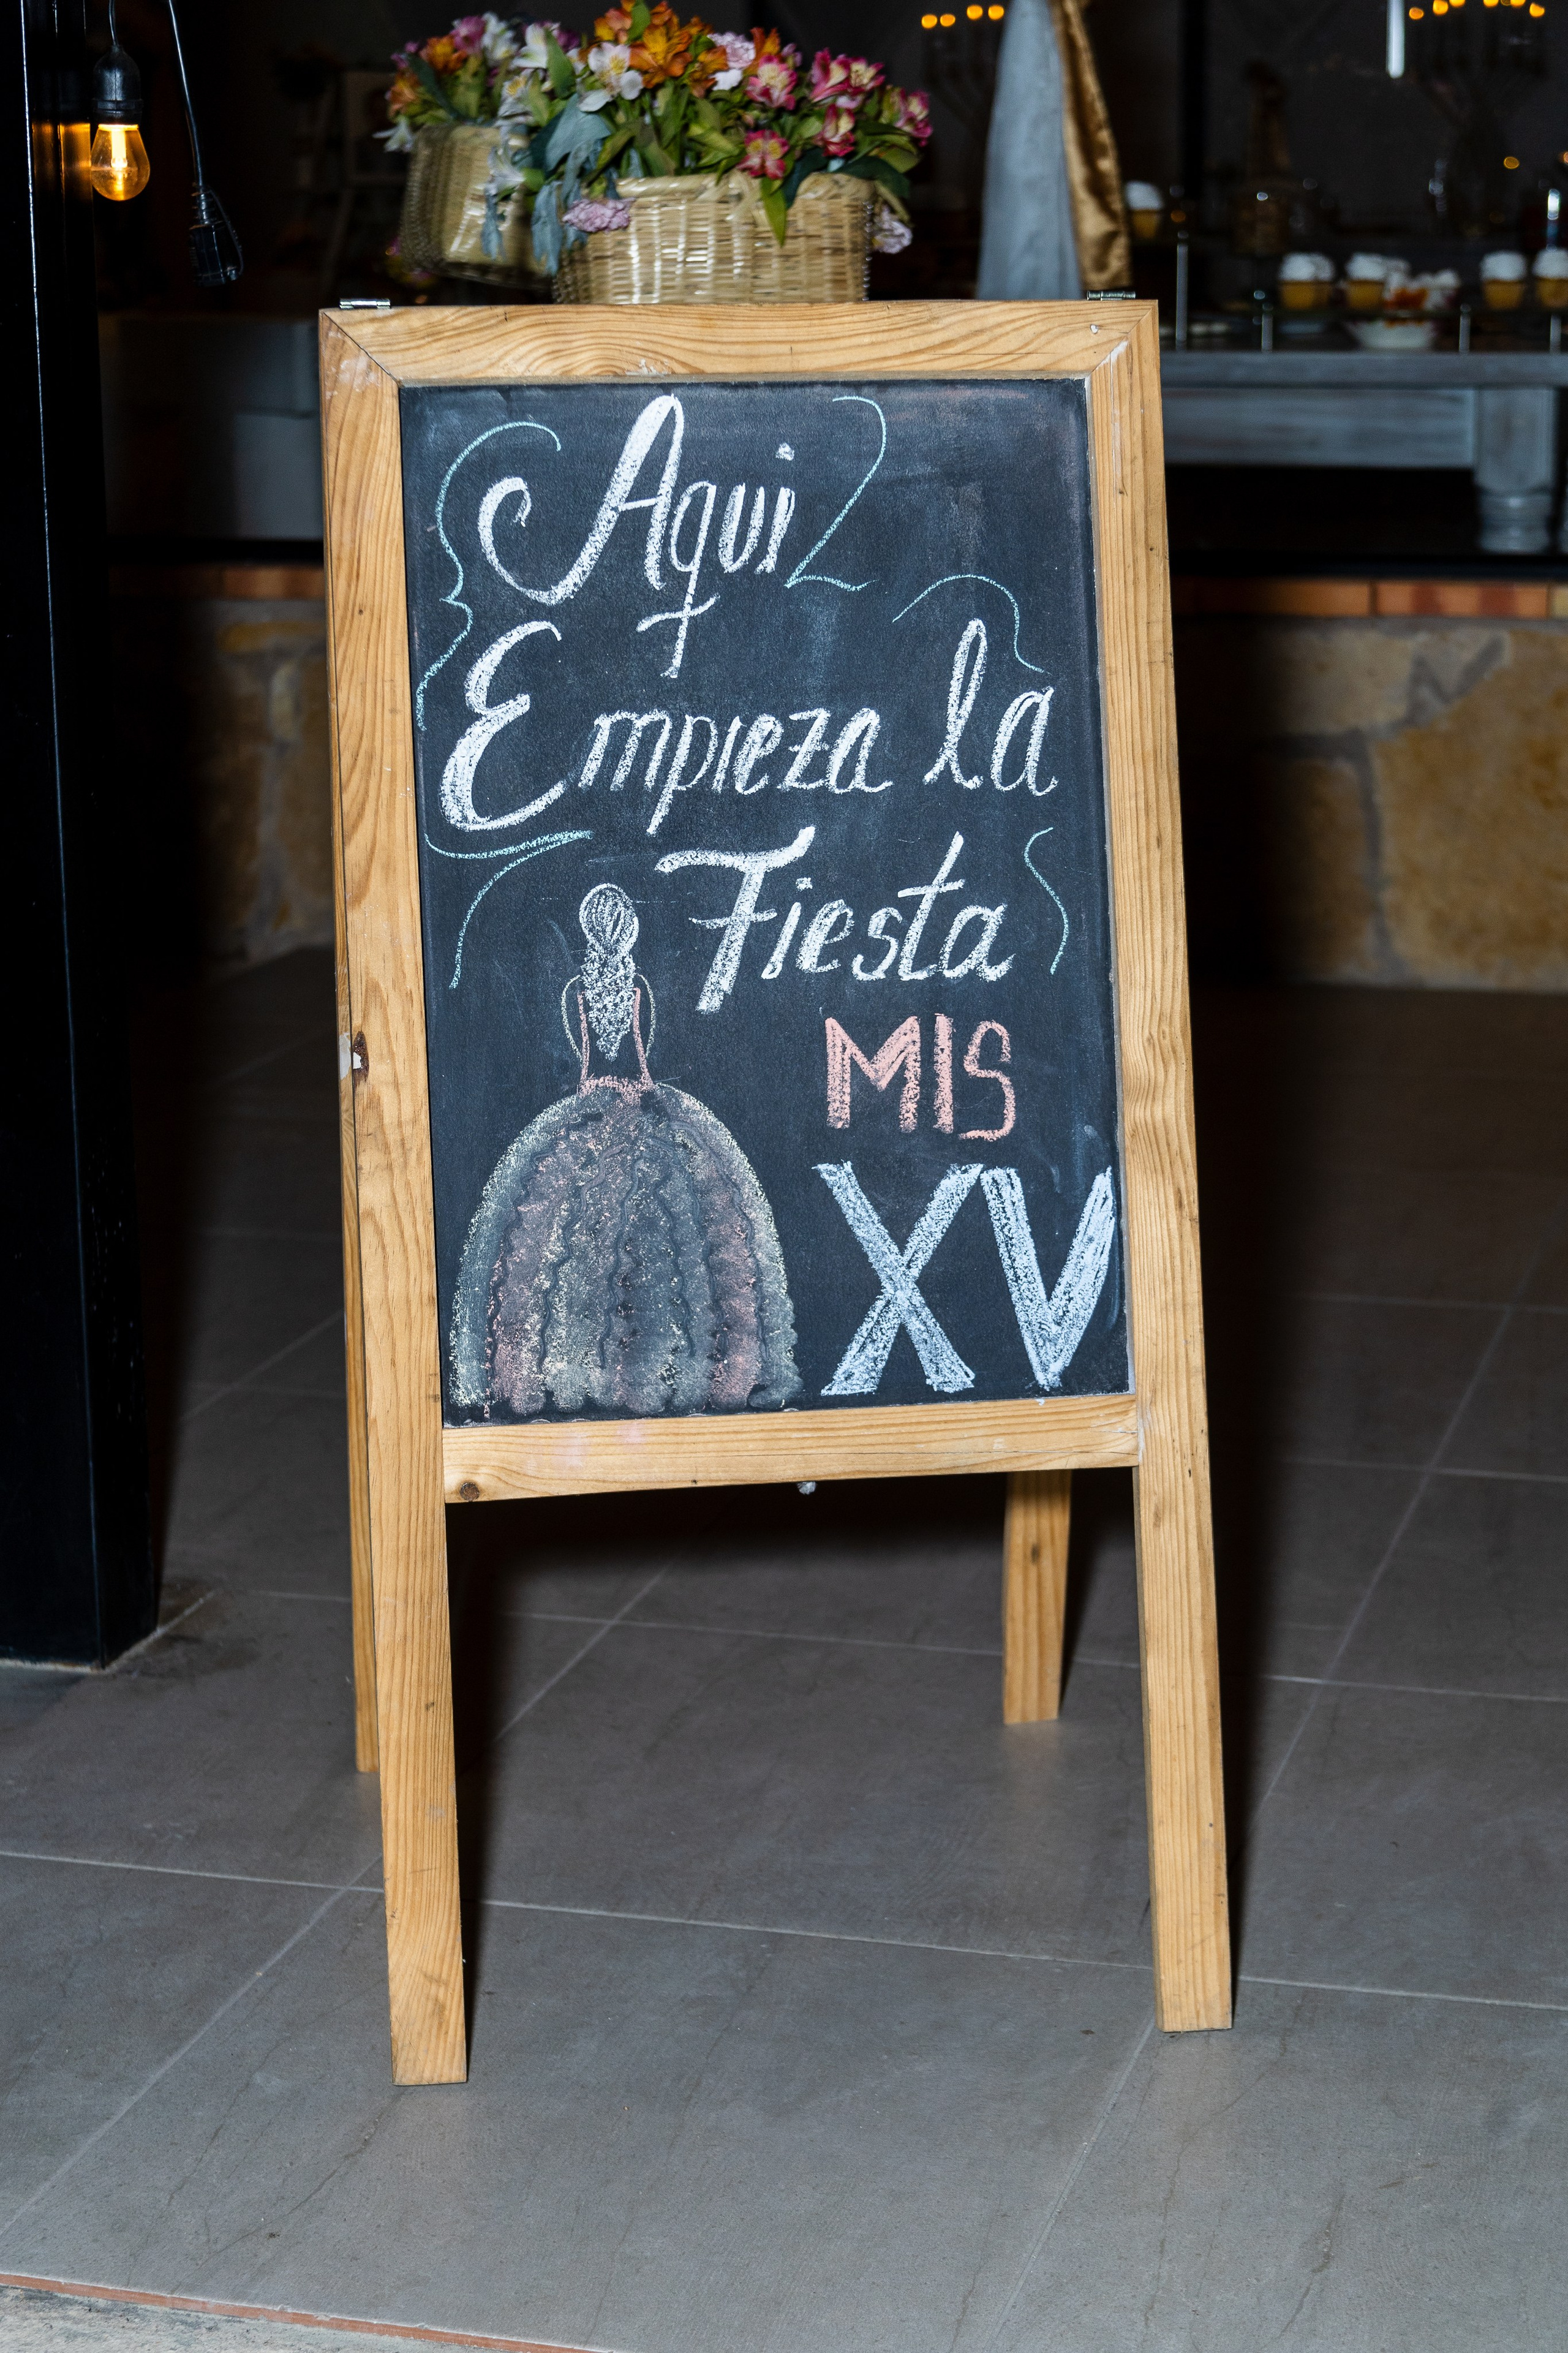 Aqui
Empieza la
Fiesta
MIS
XV